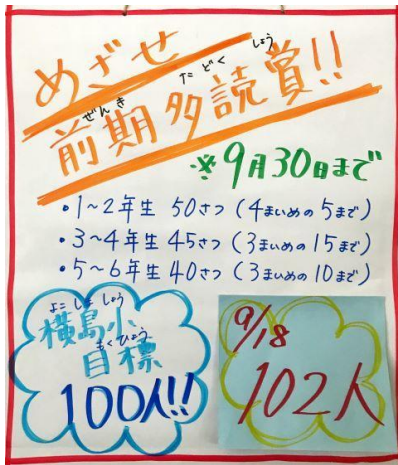 めざせ
前期多読賞!!
ぜんき たどくしょう
※9月30日まで
・1~2年生 50さつ (4まいめの5まで)
・3~4年生 45さつ (3まいめの15まで)
・5~6年生 40さつ (3まいめの10まで)
よこしましょう
横島小
もくひょう
目標
100人!!
9/18
102人